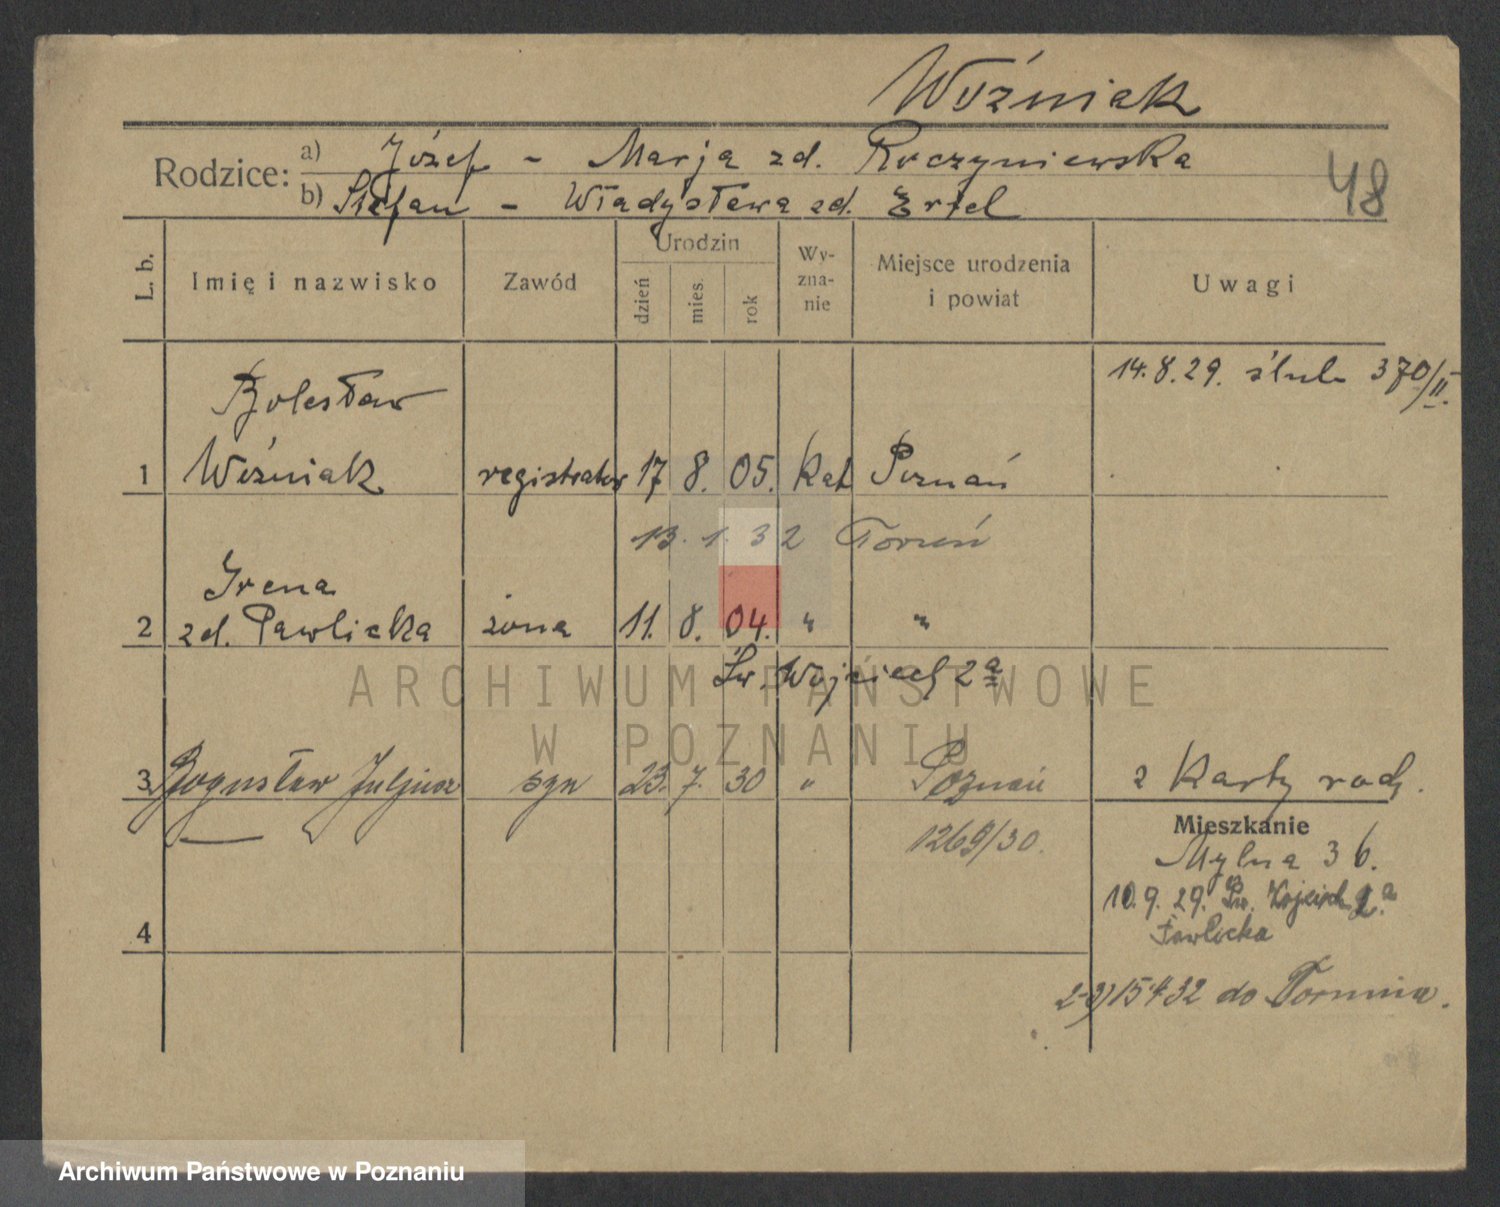 Woźniak
Rodzice: a) Józef - Marja zd. Roczyniewska
b) Stefan - Władysława zd. Ertel
48
L. b. Imię i nazwisko Zawód Urodzin dzień mies. rok Wy-zna-nie Miejsce urodzenia i powiat Uwagi
14.8.29. ślub 370/II.
Bolesław
1 Woźniak registrator 17 8. 05. kat Poznań
13. 1. 32 Toruń
Irena
2 zd. Pawlicka żona 11. 8. 04. " "
Św. Wojciech 2a
ARCHIWUM PAŃSTWOWE
W POZNANIU
3 Bogusław Juljusz syn 23. 7. 30 " Poznań z Karty rodz.
1269/30.
Mieszkanie
Mylna 36.
10.9.29. Św. Wojciech 2a
Pawlicka
4
2-3) 15 4 32 do Torunia.
Archiwum Państwowe w Poznaniu